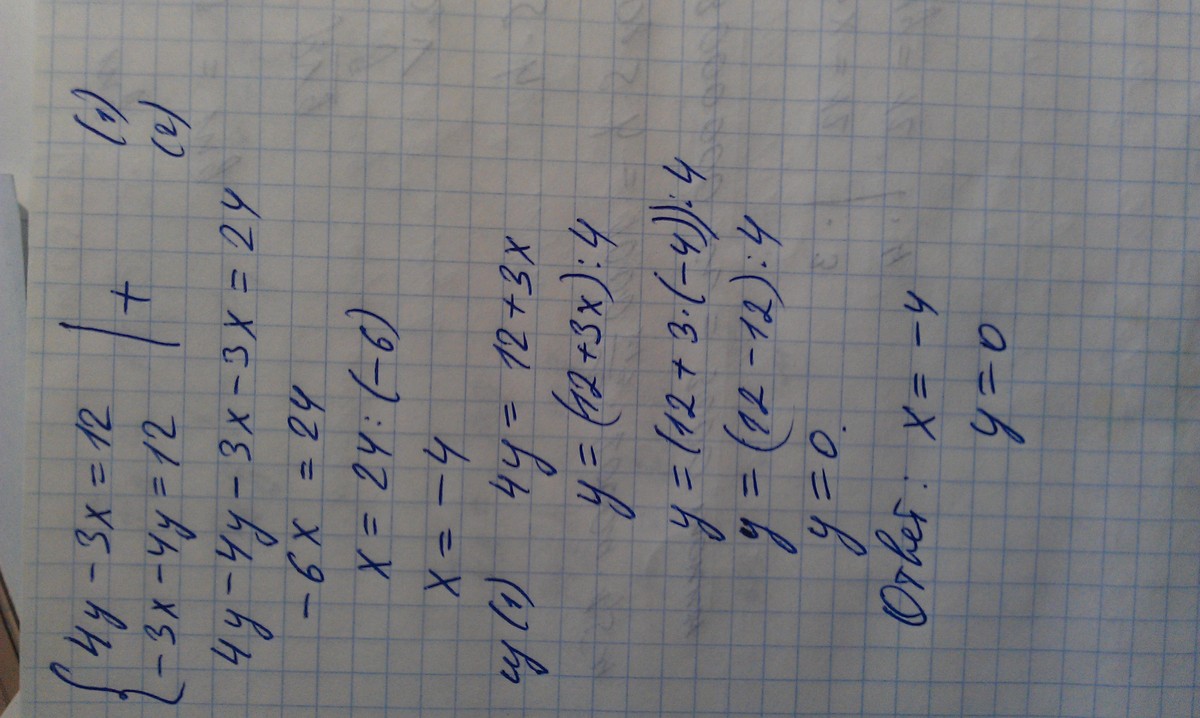 4y - 3x = 12 | + (1)
-3x - 4y = 12 (2)
4y - 4y - 3x - 3x = 24
-6x = 24
x = 24 : (-6)
x = -4
из (1) 4y = 12 + 3x
y = (12 + 3x) : 4
y = (12 + 3 · (-4)) : 4
y = (12 - 12) : 4
y = 0.
Ответ: x = -4
y = 0